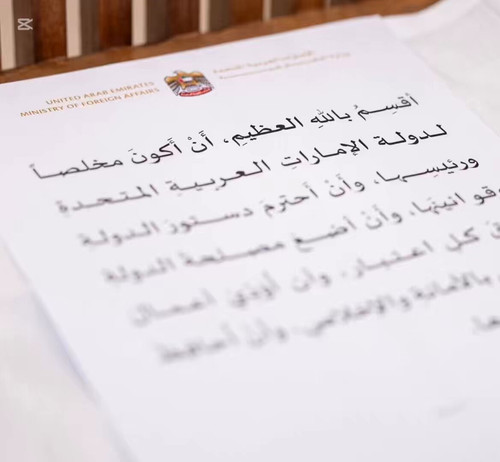 UNITED ARAB EMIRATES
MINISTRY OF FOREIGN AFFAIRS
أقسِمُ باللهِ العظيمِ، أنْ أكونَ مخلصاً
لدولة الإماراتِ العربيةِ المتحدةِ
ورئيسِها، وأنْ أحترمَ دستورَ الدولة
وقوانينَها، وأنْ أضعَ مصلحةَ الدولة
كل اعتبار، وأن أؤدي أعمال
بالأمانة والإخلاص، وأن أحافظ